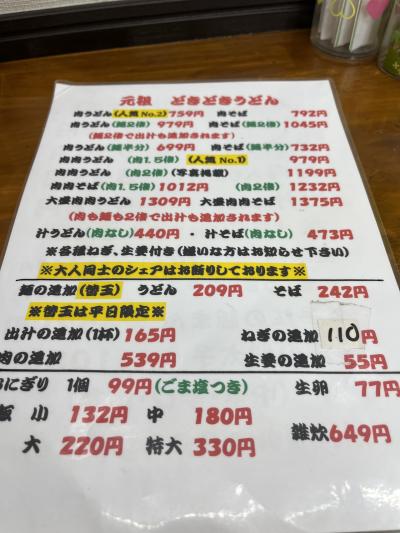 元祖 どきどきうどん
肉うどん(人気No.2)759円 肉そば 792円
肉うどん(麺2倍) 979円 肉そば(麺2倍)1045円
(麺2倍で出汁も追加されます)
肉うどん(麺半分) 699円 肉そば(麺半分)732円
肉肉うどん(肉1.5倍) (人気No.1) 979円
肉肉うどん (肉2倍) (写真掲載) 1199円
肉肉そば(肉1.5倍) 1012円 (肉2倍) 1232円
大盛肉肉うどん 1309円 大盛肉肉そば 1375円
(肉も麺も2倍で出汁も追加されます)
汁うどん(肉なし) 440円・汁そば(肉なし) 473円
※各種ねぎ、生姜付き(嫌いな方はお知らせ下さい)
※大人同士のシェアはお断りしております※
麺の追加(替玉) うどん 209円 そば 242円
※替玉は平日限定※
出汁の追加(1杯) 165円 ねぎの追加 110円
肉の追加 539円 生姜の追加 55円
おにぎり 1個 99円(ごま塩つき) 生卵 77円
飯 小 132円 中 180円 雑炊649円
大 220円 特大 330円